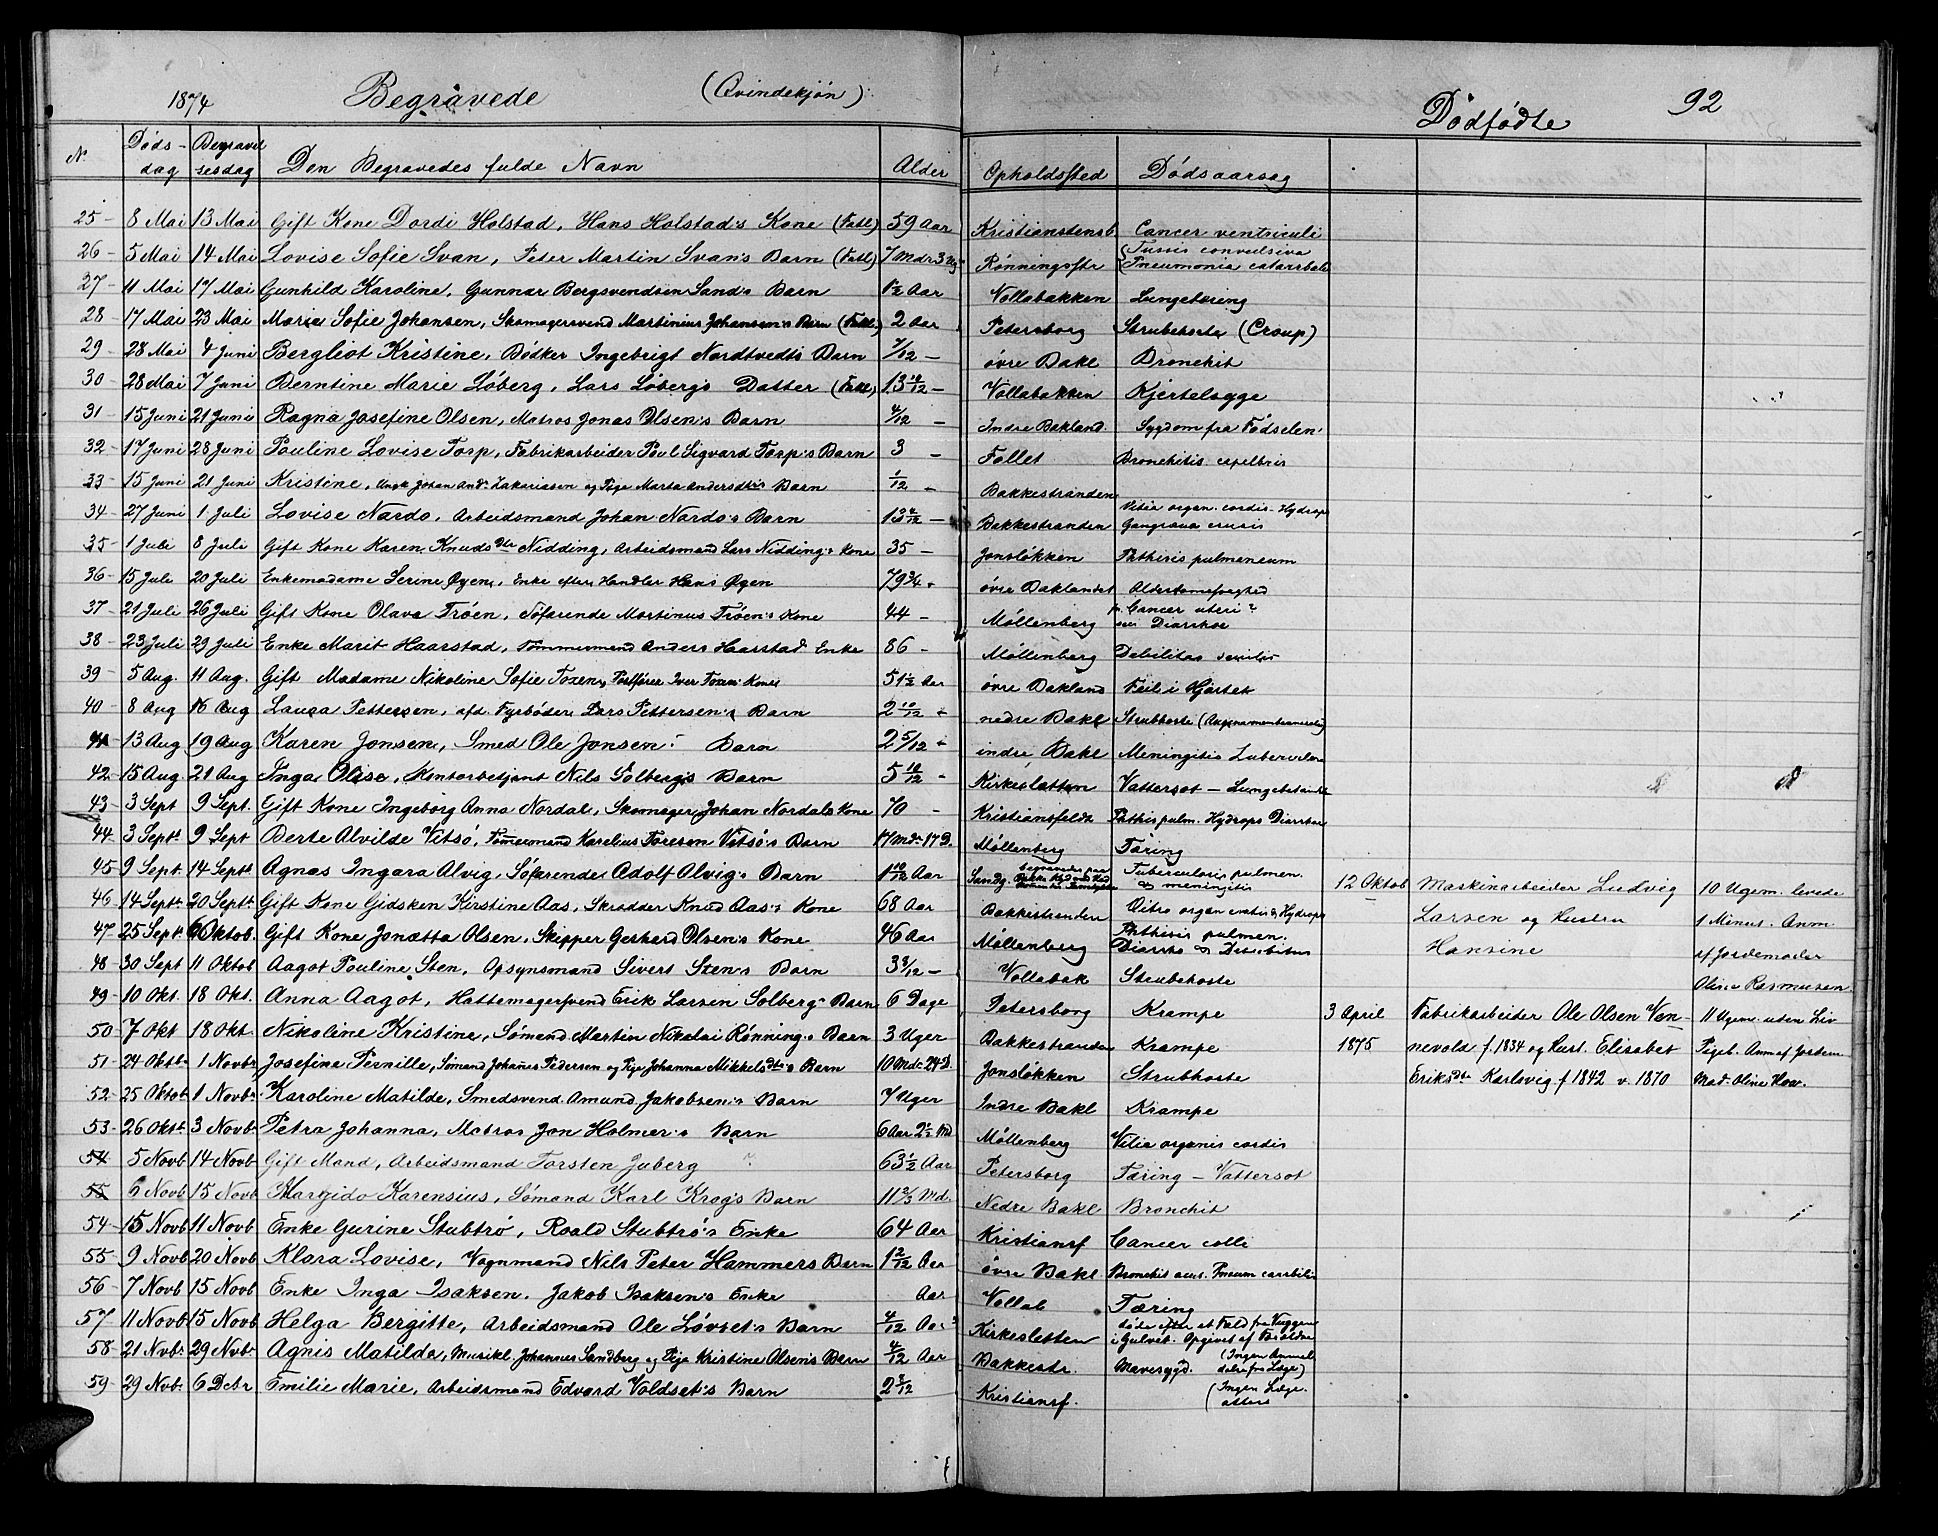 1874 Begravede (Qvindekjön) Dödfödte 92
N. Döds-dag Begravelsesdag Den Begravedes fulde Navn Alder Opholdssted Dödsaarsag
25 - 8 Mai 13 Mai Gift Kone Dordi Holstad, Hans Holstad's Kone (Fatl) 59 Aar Kristianstensb Cancer ventriculi
26 - 5 Mai 14 Mai Lovise Sofie Svan, Peter Martin Svan's Barn (Fatl) 7 Mdr 3 Ug Rönningsstr Tussis convulsiva Pneumonia catarrhal
27 - 11 Mai 17 Mai Gunhild Karoline, Gunnar Bergsvendsen Sand's Barn 1/2 Aar Vollabakken Lungebetænd
28 - 17 Mai 23 Mai Marie Sofie Johansen, Skomagersvend Martinius Johansen's Barn (Fatl) 2 Aar Petersborg Strubehoste (Croup)
29 - 28 Mai 4 Juni Bergliot Kristine, Bödker Ingebrigt Nordtvedts Barn 7/12 - övre Bakl Bronchit
30 - 28 Mai 7 Juni Berntine Marie Löberg, Lars Löbergs Datter (Fatl) 13 10/12 - Vollabakken Kjertelsyge
31 - 15 Juni 21 Juni Ragna Josefine Olsen, Matros Jonas Olsen's Barn 4/12 - Indre Bakland Sygdom fra Födselen
32 - 17 Juni 28 Juni Pauline Lovise Torp, Fabrikarbeider Paul Sigvard Torp's Barn 3 - Follet Bronchitis capilbris
33 - 15 Juni 21 Juni Kristine, Ungk Johan And. Zakariasen og Pige Marta Andersdtr's Barn 1/12 - Bakkestranden
34 - 27 Juni 1 Juli Lovise Nardo, Arbeidsmand Johan Nardo's Barn 13 4/12 - Bakkestranden Vitia organ. cordis - Hydrops Gangræna cruris
35 - 1 Juli 8 Juli Gift Kone Karen Knudsdtr Nidding, Arbeidsmand Lars Nidding's Kone 35 - Jonslökken Phthisis pulmonum
36 - 15 Juli 20 Juli Enkemadame Serine Øyen, Enke efter Handler Hans Øyen 79 3/4 - övre Baklandet Alderdomssvaghed
37 - 21 Juli 26 Juli Gift Kone Olava Tröen, Söfarende Martinus Tröen's Kone 44 - Möllenberg Cancer uteri? Diarrhoe
38 - 23 Juli 29 Juli Enke Marit Haarstad, Tömmermand Anders Haarstad Enke 86 - Möllenberg Debilitas senilis
39 - 5 Aug. 11 Aug. Gift Madame Nikoline Sofie Toxen, Postförer Iver Toxen Kone 51 1/2 Aar övre Bakland Feil i Hjertet
40 - 8 Aug 16 Aug Laura Pettersen, afd. Fyrböder Lars Pettersen's Barn 2 10/12 - nedre Bakl Strubhoste
41 13 Aug 19 Aug Karen Jonsen, Smed Ole Jonsen's Barn 2 5/12 - indre Bakl Meningitis Tubercul
42 - 15 Aug. 21 Aug Inga Olise, Kontorbetjent Nils Solbergs Barn 5 10/12 - Kirkesletten Vattersot - Lungebetænd
43 - 3 Sept 9 Sept. Gift Kone Ingeborg Anna Nordal, Skomager Johan Nordals Kone 70 - Kristiansfeldt Phthis pulm. Hydrops Diarrhoe
44 - 3 Septr 9 Sept Berte Alvilde Vitsö, Tömmermand Karelius Toresen Vitsö's Barn Mdr 17 D. Möllenberg Tæring
45 - 9 Sept. 14 Septr Agnes Ingara Alvig, Söfarende Adolf Alvig's Barn 1 10/12 Aar Tuberculosis pulmon. & meningitis
12 Oktob Maskinarbeider Ludvig 10 Ugem. levede
46 - 14 Septr. 20 Septr Gift Kone Gidsken Kirstine Aas, Skrædder Knud Aas's Kone 68 Aar Bakkestranden Vitia organ cordis & Hydrops
Larsen og Hustru 1 Minut. Anm.
47 - 25 Septr. 6 Oktob. Gift Kone Jonetta Olsen, Skipper Gerhard Olsen's Kone 46 Aar Möllenberg Phthisis pulmon. Diarrhö & Decubitus
Hansine af Jordemoder
48 - 30 Sept 11 Oktob Aagot Pauline Sten, Opsynsmand Sivert Sten's Barn 3 3/12 - Vollabak Strubehoste
Oline Rasmussen
49 - 10 Okt. 18 Okt. Anna Aagot, Hattemagersvend Erik Larsen Solberg's Barn 6 Dage Petersborg Krampe
3 April Fabrikarbeider Ole Olsen Ven- 11 Ugem. uden Liv
50 - 7 Okt 18 Okt. Nikoline Kristine, Sömand Martin Nikolai Rönning's Barn 3 Uger Bakkestranden Krampe
1875 nevold f. 1834 og Hust. Elisabet Pigeb. Anm af Jordem
51 - 24 Oktbr 1 Novbr Josefine Pernille, Sömand Johanes Pedersen og Pige Johanna Mikkelsdtr's Barn 10 Mdr 24 D. Jonslökken Strubhoste
Eriksdtr Karlsvig f 1842 v. 1870 Mad. Oline How.
52 - 25 Oktob 1 Novbr Karoline Matilde, Smedsvend Amund Jakobsen's Barn 7 Uger Indre Bakl Krampe
53 - 26 Oktr. 3 Novbr Petra Johanna, Matros Jon Holmer's Barn 6 Aar 2 1/2 Md Möllenberg Vitia organis cordis
54 5 Novb 14 Novb Gift Mand, Arbeidsmand Torsten Juberg 63 1/2 Aar Petersborg Tæring - Vattersot
55 6 Novb 15 Novb Margido Karensius, Sömand Karl Krogs Barn 11 2/3 Md. Nedre Bakl Bronchit
54 - 15 Novb 11 Novb Enke Gurine Stubtrö, Roald Stubtrö's Enke 64 Aar Kristiansf Cancer colli
55 - 9 Novb 20 Novb Klara Lovise, Vognmand Nils Peter Hammers Barn 1 2/12 Aar övre Bakl Bronchit acut.
56 - 7 Novb 15 Novb Enke Inga Isaksen, Jakob Isaksen's Enke Aar Vollab Tæring
57 - 11 Novb 15 Novb Helga Bergitte, Arbeidsmand Ole Lövset's Barn 4/12 Aar Kirkesletten döde efter et Fald fra Vuggen i Gulvet. Opgivet af Forældre
58 - 21 Nvbr 29 Nvbr Agnis Matilde, Musikl. Johannes Sandberg og Pige Kristine Olsens Barn 4/12 Aar Bakkestr. Mavesygd. (Ingen Anmeldelse fra Læge)
59 - 29 Nvb. 6 Dcbr Emilie Marie, Arbeidsmand Edvard Voldset's Barn 2 3/12 Kristiansf. (Ingen Læge attest